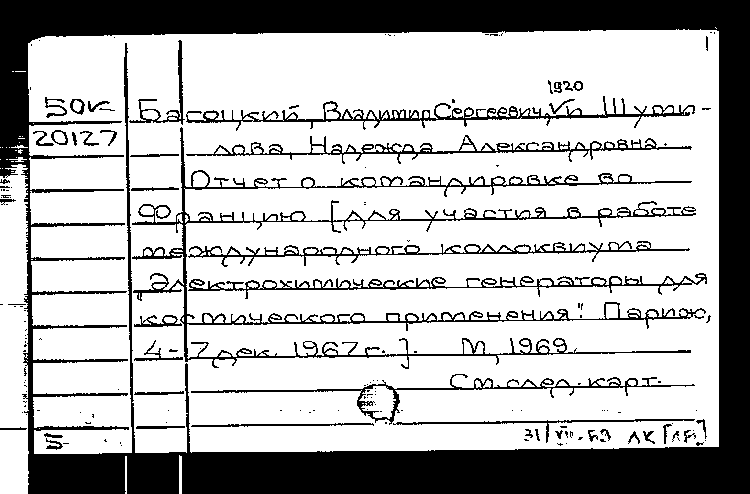 1
1920
50к Басоцкий, Владимир Сергеевич, Vи Шуми-
20127 лова, Надежда Александровна.
Отчет о командировке во
Францию [для участия в работе
международного коллоквиума
"Электрохимические генераторы для
космического применения". Париж,
4-7 дек. 1967 г.]. М, 1969.
См. след. карт.
Б 31/VIII-69 ЛК